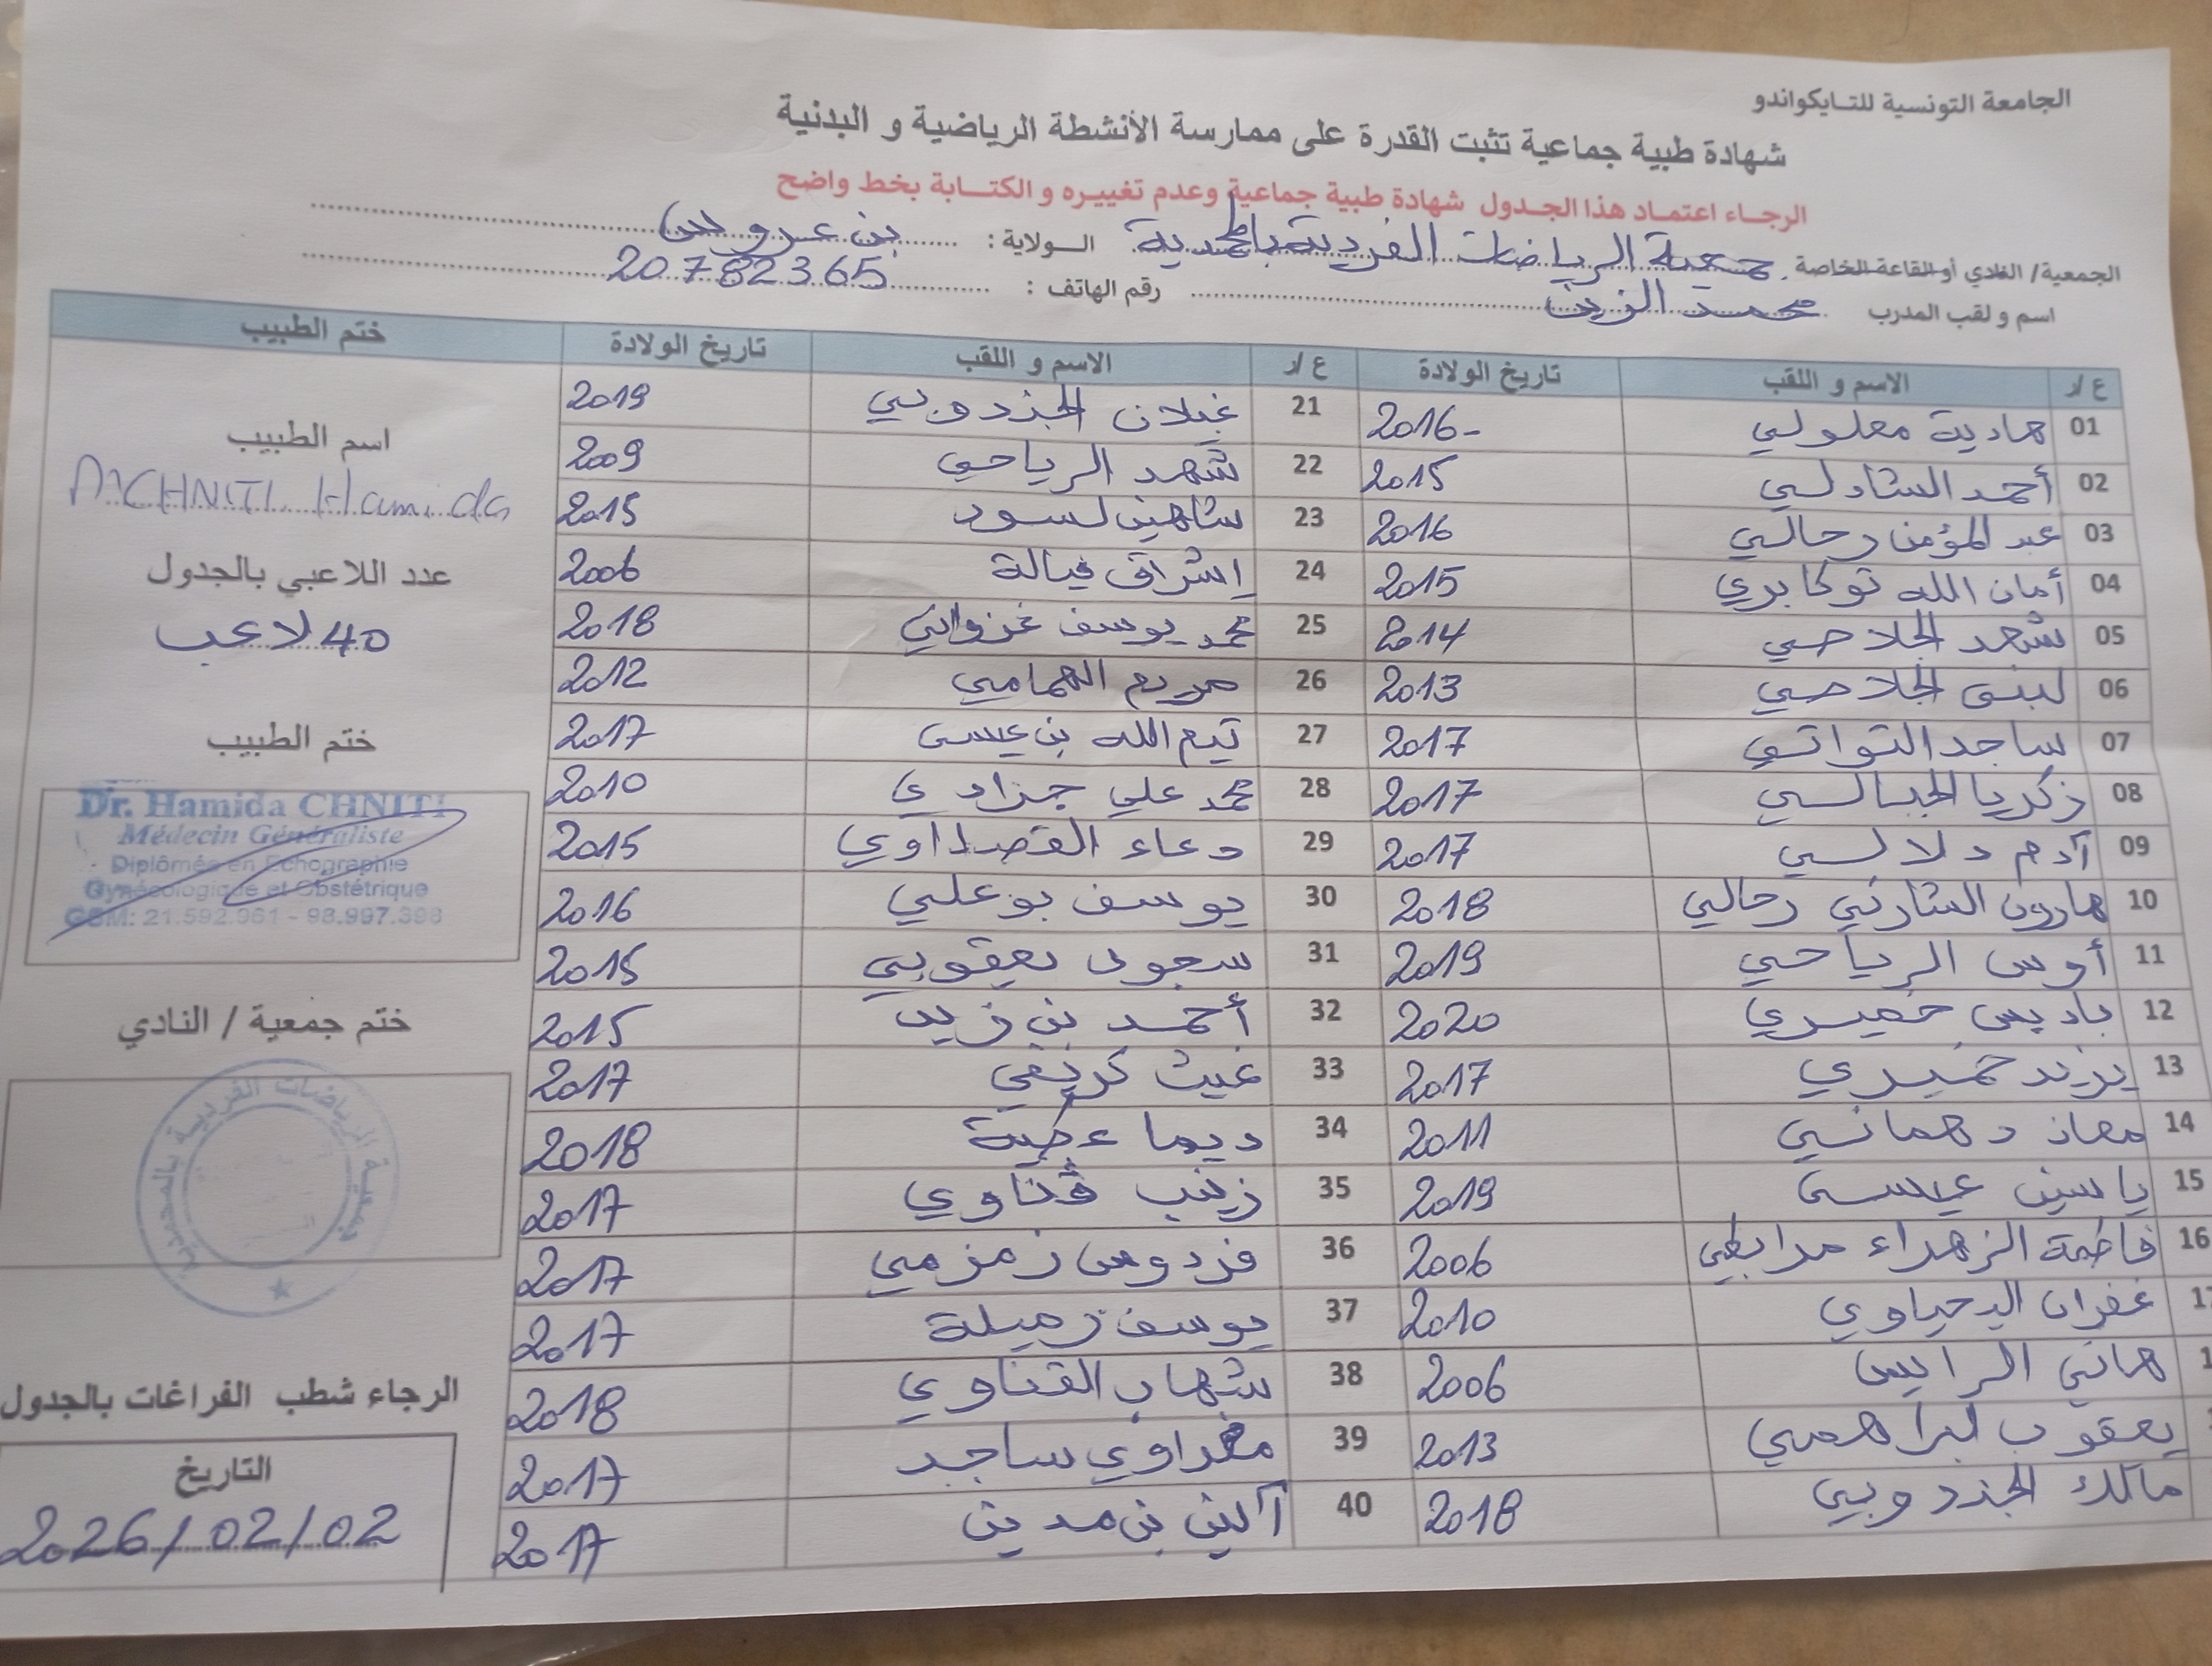 الجامعة التونسية للتايكواندو
شهادة طبية جماعية تثبت القدرة على ممارسة الأنشطة الرياضية و البدنية
الرجاء اعتماد هذا الجدول شهادة طبية جماعية وعدم تغييره و الكتابة بخط واضح
الجمعية/ النادي أو القاعة الخاصة جمعية الرياضات الفردية بالمحمدية الولاية : بن عروس
اسم و لقب المدرب محمد الزين رقم الهاتف : 20782365
ع /ر الاسم و اللقب تاريخ الولادة ع /ر الاسم و اللقب تاريخ الولادة ختم الطبيب
01 هادية معلولي 2016- 21 غيلان الجندوبي 2019
02 أحمد الشاذلي 2015 22 شهد الرياحي 2009
03 عبد المؤمن رحالي 2016 23 شاهين لسود 2015
04 أمان الله توكابري 2015 24 إشراق فيالة 2006
05 شهد الجلاصي 2014 25 محمد يوسف غزواني 2018
06 لبنى الجلاصي 2013 26 مريم الهمامي 2012
07 ساجد التواتي 2017 27 تيم الله بن عيسى 2017
08 زكريا الجبالي 2017 28 محمد علي جرادي 2010
09 آدم دلالسي 2017 29 دعاء القصداوي 2015
10 هارون الشارني رحالي 2018 30 يوسف بوعلي 2016
11 أوس الرياحي 2019 31 سجود يعقوبي 2015
12 باديس حميدي 2020 32 أحمد بن زيد 2015
13 يزيد حميدي 2017 33 غيث كريفي 2017
14 معاذ دهماني 2011 34 ديما عطية 2018
15 ياسين عيسى 2019 35 زينب ڨناوي 2017
16 فاطمة الزهراء مرابطي 2006 36 فردوس زمزمي 2017
غفران اليحياوي 2010 37 يوسف زميلة 2017
هاني الرايس 2006 38 شهاب القناوي 2018
يعقوب لبراهمي 2013 39 ساجد 2017
مالك الجندوبي 2018 40 آلين بن مدين 2017
اسم الطبيب
Dr CHNITI Hamida
عدد اللاعبي بالجدول
40 لاعب
ختم الطبيب
Dr. Hamida CHNITI
Médecin Généraliste
Diplômée en Echographie
Gynécologique et Obstétrique
GSM: 21.592.961 - 98.997.398
ختم جمعية / النادي
جمعية الرياضات الفردية بالمحمدية
الرجاء شطب الفراغات بالجدول
التاريخ
2026/02/02